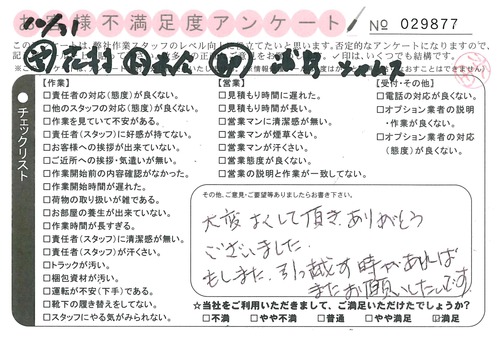 お客様不満足度アンケート No 029877
チェックリスト
【作業】
□責任者の対応(態度)が良くない。
□他のスタッフの対応(態度)が良くない。
□作業を見ていて不安がある。
□責任者(スタッフ)に好感が持てない。
□お客様への挨拶が出来ていない。
□ご近所への挨拶・気遣いが無い。
□作業開始前の内容確認がなかった。
□作業開始時間が遅れた。
□荷物の取り扱いが雑である。
□お部屋の養生が出来ていない。
□作業時間が長すぎる。
□責任者(スタッフ)に清潔感が無い。
□責任者(スタッフ)が汗くさい。
□トラックが汚い。
□梱包資材が汚い。
□運転が不安(下手)である。
□靴下の履き替えをしてない。
□スタッフにやる気がみられない。
【営業】
□見積もり時間に遅れた。
□見積もり時間が長い。
□営業マンに清潔感が無い。
□営業マンが煙草くさい。
□営業マンが汗くさい。
□営業態度が良くない。
□営業の説明と作業が一致してない。
【受付・その他】
□電話の対応が良くない。
□オプション業者の説明
・作業が良くない。
□オプション業者の対応
(態度)が良くない。
その他、ご意見・ご要望等ありましたらお書き下さい。
大変よくして頂き、ありがとう
ございました。
もしまた、引っ越す時があれば
またお願いしたいです
☆当社をご利用いただきまして、ご満足いただけたでしょうか?
□不満 □やや不満 □普通 □やや満足 ☑満足